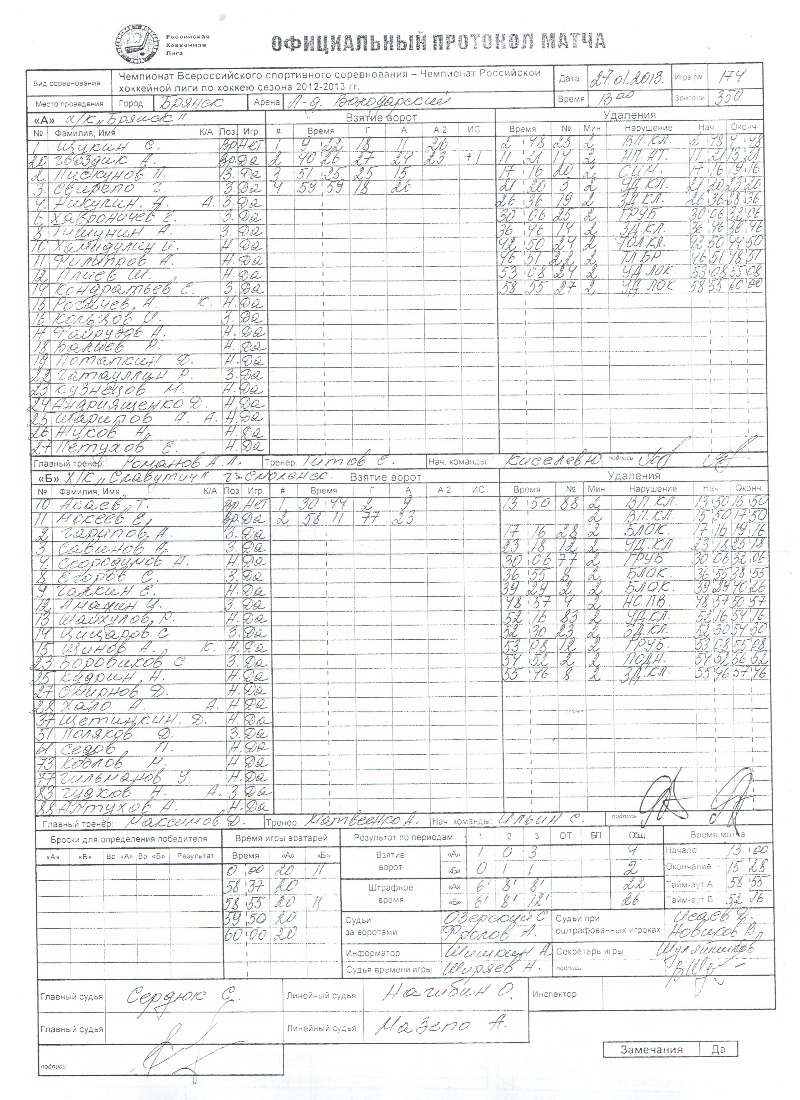 Российская Хоккейная Лига
ОФИЦИАЛЬНЫЙ ПРОТОКОЛ МАТЧА
Вид соревнования Чемпионат Всероссийского спортивного соревнования – Чемпионат Российской хоккейной лиги по хоккею сезона 2012-2013 гг. Дата 27.01.2013 Игра № 174
Место проведения Город БРЯНСК Арена Л-д. Володарский Время 13 00 Зрители 350
«А» х/к „Брянск" Взятие ворот Удаления
№ Фамилия, Имя К/А Поз. Игр. # Время Г А А 2 ИС Время № Мин Нарушение Нач. Оконч.
1 Щукин С. Вр. Нет 1 9 22 18 11 26 2 48 25 2 ВП.КЛ. 2 48 4 48
20 Гвоздик А. Вр. Да 2 40 26 27 24 23 +1 11 21 14 2 НП.АТ. 11 21 13 21
2 Пискунов П. З. Да 3 51 25 25 15 17 16 20 2 17 16 19 16
3 Г. З. Да 4 59 59 18 21 20 3 2 УД.КЛ. 21 20 23 20
4 Никулин А. А. З. Да 26 36 19 2 ЗД.КЛ. 26 36 28 36
6 Хаврончев Е. З. Да 30 06 25 2 ГРУБ 30 06 32 06
8 Тишунин А. З. Да 36 46 14 2 ЗД.КЛ. 36 46 38 46
10 Хамидулин И. Н. Да 42 50 24 2 ТОЛ.КЛ. 42 50 44 50
11 Филиппов А. Н. Да 46 51 22 2 46 51 48 51
12 Плиев Ш. Н. Да 53 08 24 2 УД.ЛОК 53 08 55 08
14 Кондратьев Е. З. Да 58 55 27 2 УД.ЛОК 58 55 60 00
15 Рогачев, А К. Н. Да
16 Кольцов И. З. Да
А. Н. Да
18 Валиев Р. Н. Да
19 Потапкин Д. Н. Да
22 Гатауллин Р. З. Да
23 Кузнецов М. Н. Да
24 Андрющенко Д. Н. Да
25 Шарипов А. А. Н. Да
26 Жуков А. Н. Да
27 Петухов Е. Н. Да
Главный тренер: Романов А.Л. Тренер Титов Е. Нач. команды: Киселев Ю подпись
«Б» Х/К „Славутич" г. Смоленск Взятие ворот Удаления
№ Фамилия, Имя К/А Поз Игр # Время Г А А 2 ИС Время № Мин Нарушение Нач. Оконч.
10 Асаев, Т. Вр. Нет 1 30 44 2 9 13 50 88 2 ВП.КЛ. 13 50 15 50
11 Мокеев Е. Вр. Да 2 58 11 77 23 2 ВП.КЛ. 15 50 17 50
2 Гарипов, А. З. Да 17 16 28 2 БЛОК. 17 16 19 16
3 Савинов А. З. Да 23 18 12 2 УД.КЛ. 23 18 25 18
4 Скородумов А. Н. Да 30 06 77 2 ГРУБ 30 06 32 06
8 Егоров С. З. Да 36 55 8 2 БЛОК. 36 55 38 55
9 Галкин Е. Н. Да 39 29 2 2 БЛОК. 39 29 40 26
12 Н. Да 48 57 4 2 НС ПВ. 48 57 50 57
13 Шайхулов, Р. Н. Да 52 16 83 2 УД.КЛ. 52 16 54 16
14 Цицаров С З. Да 52 30 23 2 ЗД.КЛ. 52 30 54 30
15 Щинов А. К. Н. Да 53 08 12 2 ГРУБ. 53 08 55 08
23 Боровиков С З. Да 54 52 2 2 ПОДН. 54 52 56 52
25 Кудрин, Н. З. Да 55 46 8 2 ЗД.КЛ. 55 46 57 46
27 Смирнов Д. Н. Да
28 Хало А. А Н. Да
37 Щетинкин Д. Н. Да
51 Поляков Д. З. Да
61 Седов П. Н. Да
73 Козлов М. Н. Да
77 Гильманов У Н. Да
83 Гудков Н. А. З. Да
88 Алтухов А. Н. Да
Главный тренер: Максимов Д. Тренер Матвеенко А. Нач. команды: Ильин С. подпись
Броски для определения победителя Время игры вратарей Результат по периодам 1 2 3 ОТ БП Общ Время матча
«А» «Б» Вр «А» Вр «Б» Результат Время «А» «Б» Взятие ворот «А» 1 0 3 4 Начало 13 00
0 00 20 11 «Б» 0 1 1 2 Окончание 15 28
58 37 20 Штрафное время «А» 6' 8' 8' 22 Тайм-аут А 58 55
58 55 20 11 «Б» 6' 8' 12' 26 Тайм-аут Б 52 16
59 50 20 Судьи за воротами Озерский С Фролов А. Судьи при оштрафованных игроках Исаев Д. Новиков В.
60 00 20 Информатор Шишкин А. Секретарь игры Шуляйников
Судья времени игры Ширяев Н. подпись
Главный судья Сердюк С. Линейный судья Нагибин О. Инспектор
Главный судья Линейный судья Мазепо А.
подписи
Замечания Да